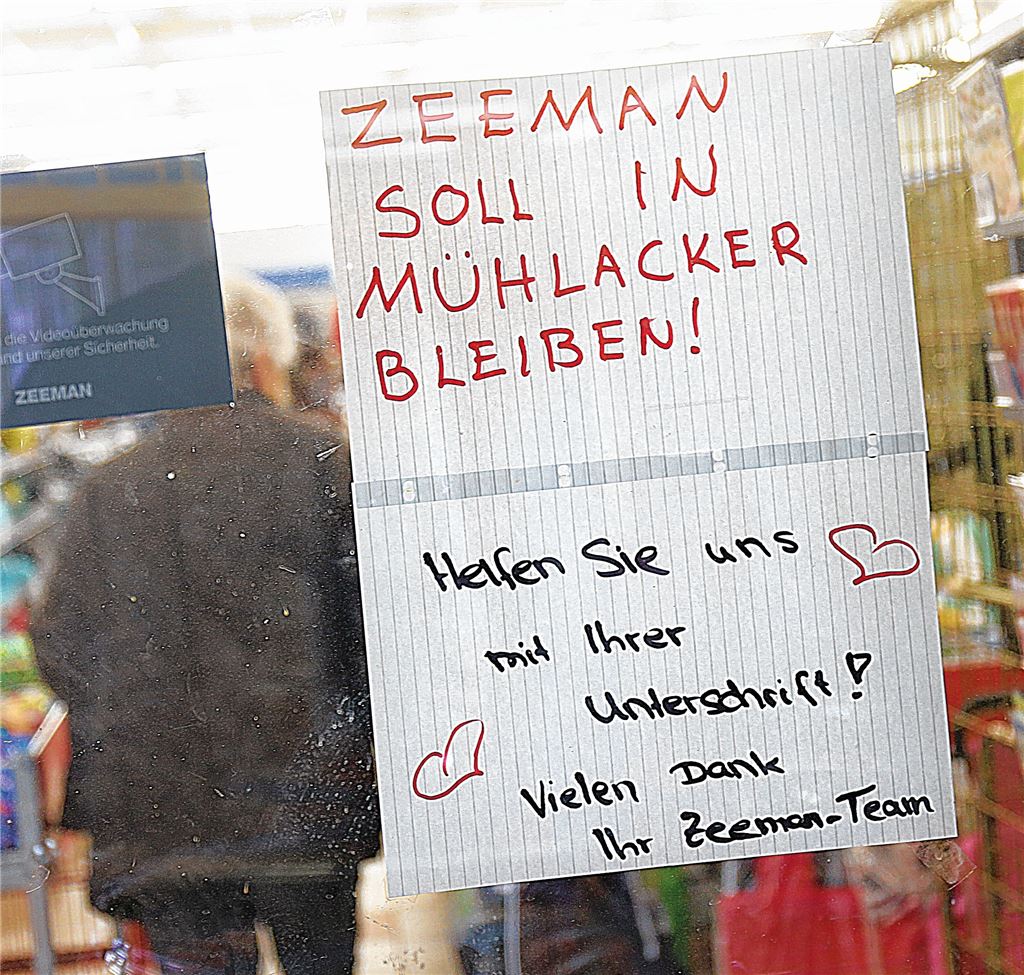 ZEEMAN
SOLL IN
MÜHLACKER
BLEIBEN!
Helfen Sie uns
mit Ihrer
Unterschrift!
Vielen Dank
Ihr Zeeman-Team
die Videoüberwachung
und unserer Sicherheit.
ZEEMAN